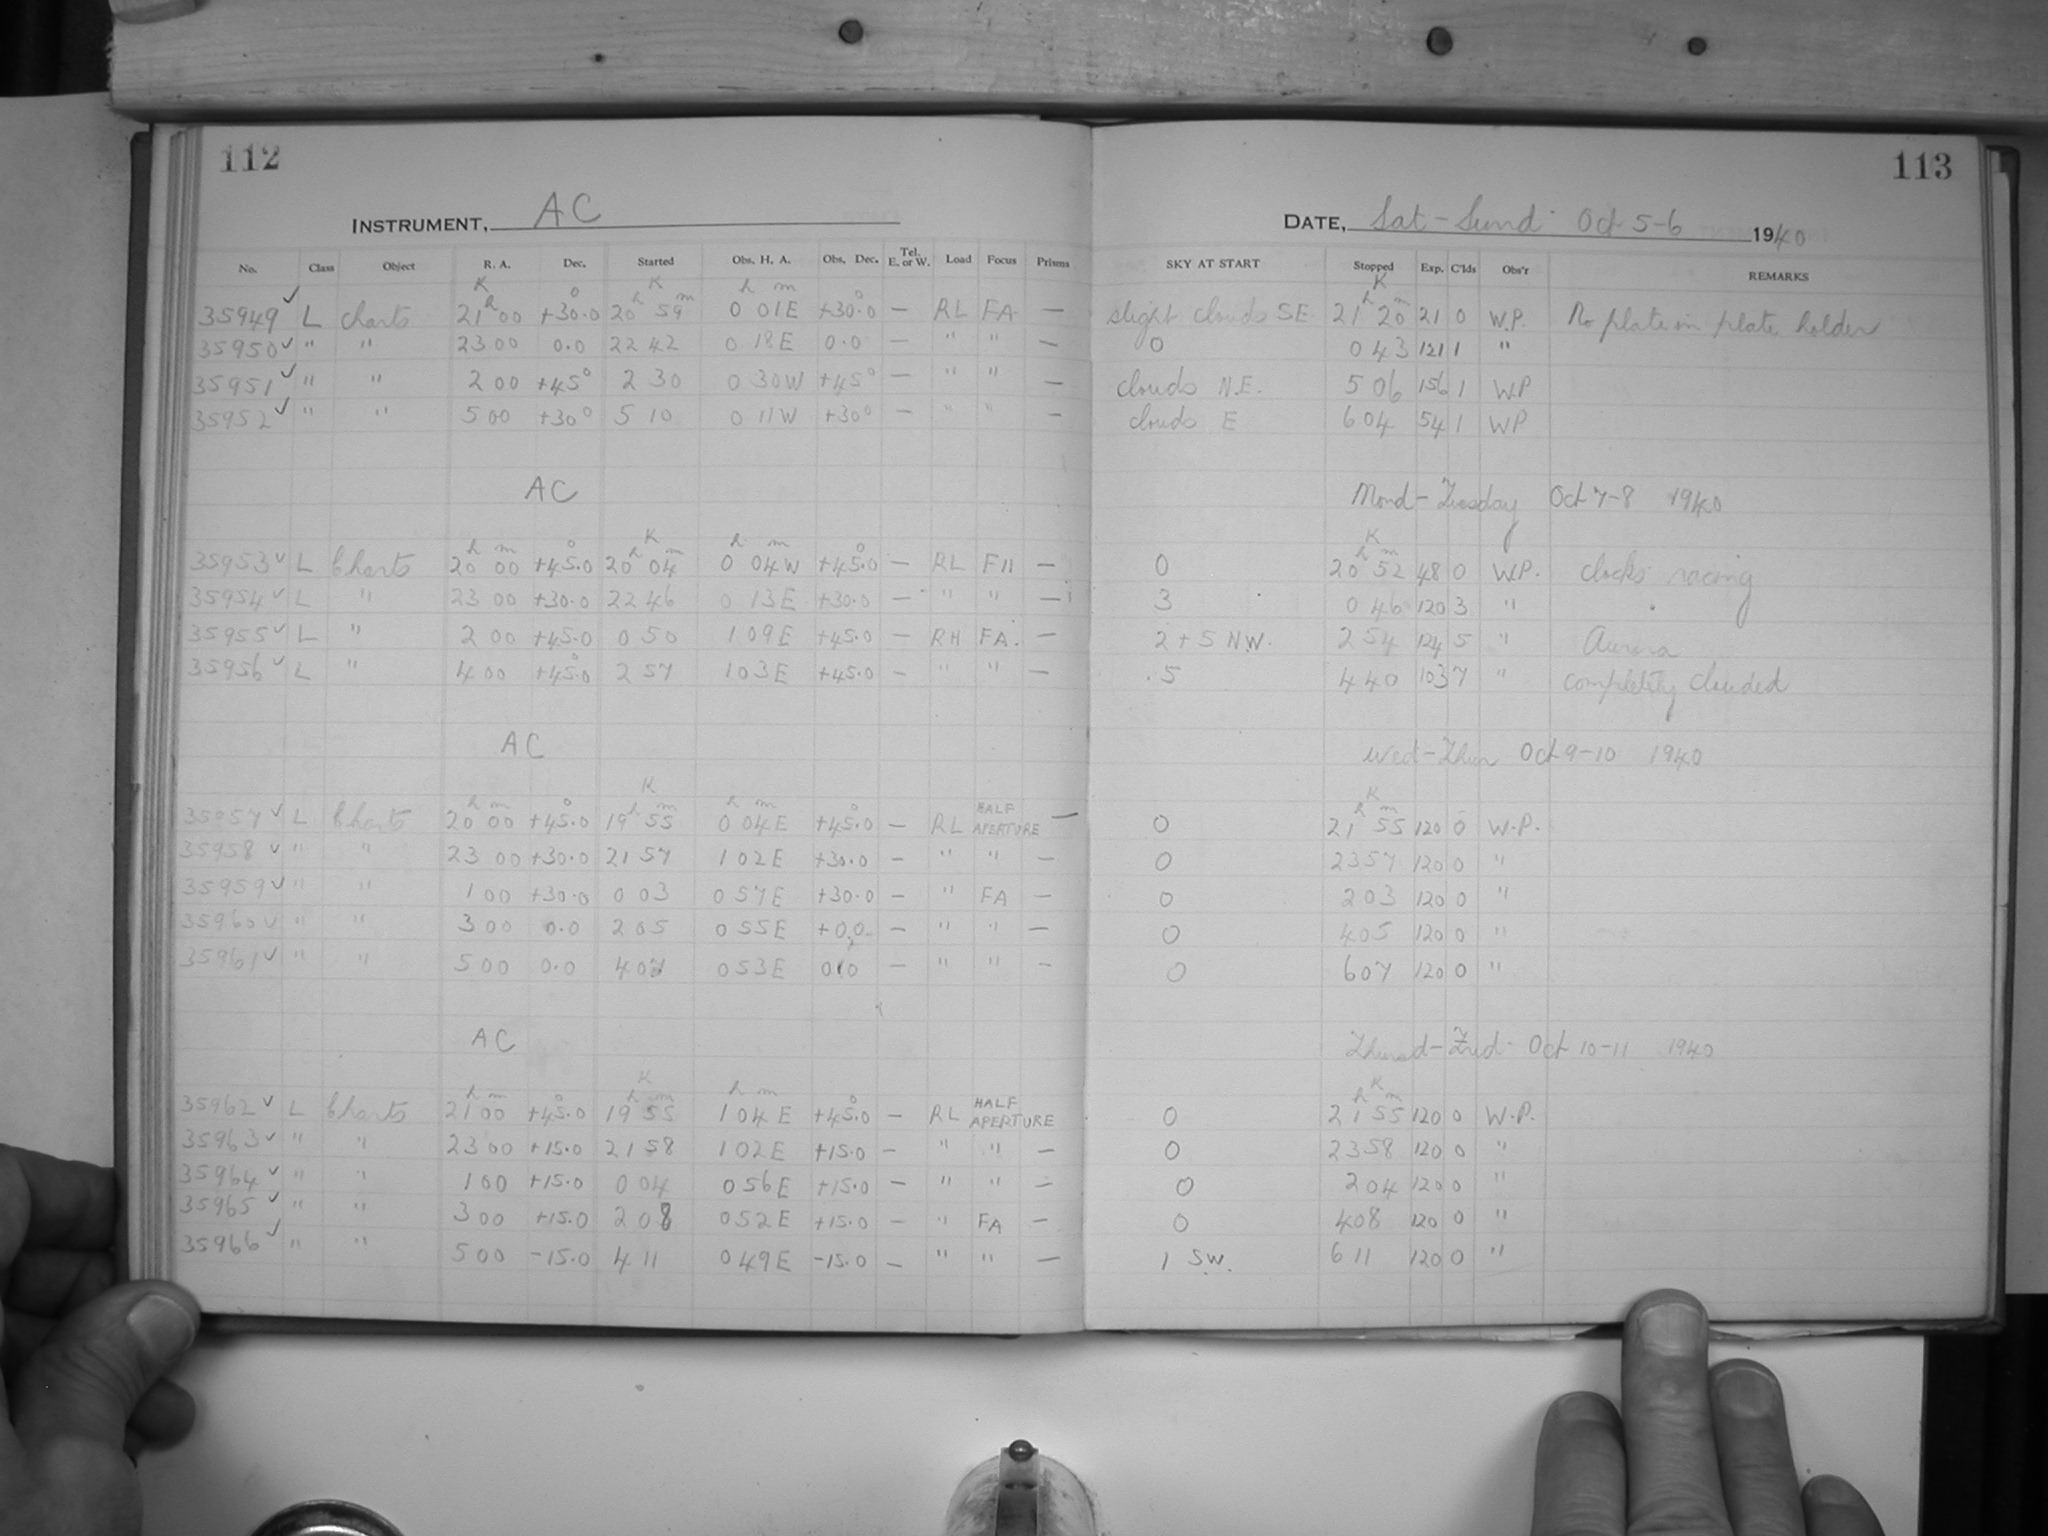 112
INSTRUMENT, AC
No. Class Object R. A. Dec. Started Obs. H. A. Obs. Dec. Tel. E. or W. Load Focus Prisms
K o K h m o
35949 ✓ L Charts 21 h 00 +30.0 20 h 59 m 0 01E +30.0 — RL FA
35950 ✓ " " 23 00 0.0 22 42 0 18E 0.0 — " " —
35951 ✓ " " 2 00 +45° 2 30 0 30W +45° — " " —
35952 ✓ " " 5 00 +30° 5 10 0 11W +30° — " " —
AC
K
h m o h m h m o
35953 ✓ L Charts 20 00 +45.0 20 04 0 04W +45.0 — RL F11 —
35954 ✓ L " 23 00 +30.0 22 46 0 13E +30.0 — " " —
35955 ✓ L " 2 00 +45.0 0 50 1 09E +45.0 — RH FA. —
35956 ✓ L " 4 00 +45.0 2 57 1 03E +45.0 — " " —
AC
K
h m o h m h m o
35957 ✓ L Charts 20 00 +45.0 19 55 0 04E +45.0 — RL HALF APERTURE —
35958 ✓ " " 23 00 +30.0 21 57 1 02E +30.0 — " " —
35959 ✓ " " 1 00 +30.0 0 03 0 57E +30.0 — " FA —
35960 ✓ " " 3 00 0.0 2 05 0 55E +0.0 — " " —
35961 ✓ " " 5 00 0.0 4 07 0 53E 0.0 — " " —
AC
K
h m o h m h m o
35962 ✓ L Charts 21 00 +45.0 19 55 1 04E +45.0 — RL HALF APERTURE
35963 ✓ " " 23 00 +15.0 21 58 1 02E +15.0 — " " —
35964 ✓ " " 1 00 +15.0 0 04 0 56E +15.0 — " " —
35965 ✓ " " 3 00 +15.0 2 08 0 52E +15.0 — " FA —
35966 ✓ " " 5 00 -15.0 4 11 0 49E -15.0 — " " —
113
DATE, Sat-Sund Oct 5-6 1940
SKY AT START Stopped Exp. C'lds Obs'r REMARKS
K
slight clouds SE 21 h 20 m 21 0 W.P. No plate in plate holder
0 0 43 121 1 "
clouds N.E. 5 06 156 1 W.P
clouds E 6 04 54 1 WP
Mond-Tuesday Oct 7-8 1940
K
h m
0 20 52 48 0 W.P. clocks racing
3 0 46 120 3 "
2 + 5 N.W. 2 54 124 5 " Aurora
.5 4 40 103 7 " completely clouded
Wed-Thur Oct 9-10 1940
K
h m
0 21 55 120 0 W.P.
0 23 57 120 0 "
0 2 03 120 0 "
0 4 05 120 0 "
0 6 07 120 0 "
Thursd-Frid- Oct 10-11 1940
K
h m
0 21 55 120 0 W.P.
0 23 58 120 0 "
0 2 04 120 0 "
0 4 08 120 0 "
1 S.W. 6 11 120 0 "